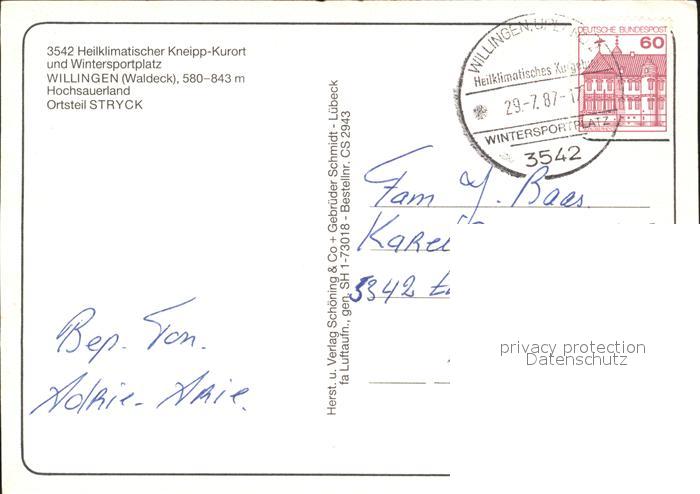 3542 Heilklimatischer Kneipp-Kurort
und Wintersportplatz
WILLINGEN (Waldeck), 580–843 m
Hochsauerland
Ortsteil STRYCK
WILLINGEN, UPL
Heilklimatisches Kurgeb
29.-7.87-17
WINTERSPORTPLATZ
3542
DEUTSCHE BUNDESPOST
60
Herst. u. Verlag Schöning & Co + Gebrüder Schmidt - Lübeck
fa Luftaufn., gen. SH 1-73018 - Bestellnr. CS 2943
Fam J. Baas.
3342
Bep. Ton.
Adrie- Arie.
privacy protection
Datenschutz